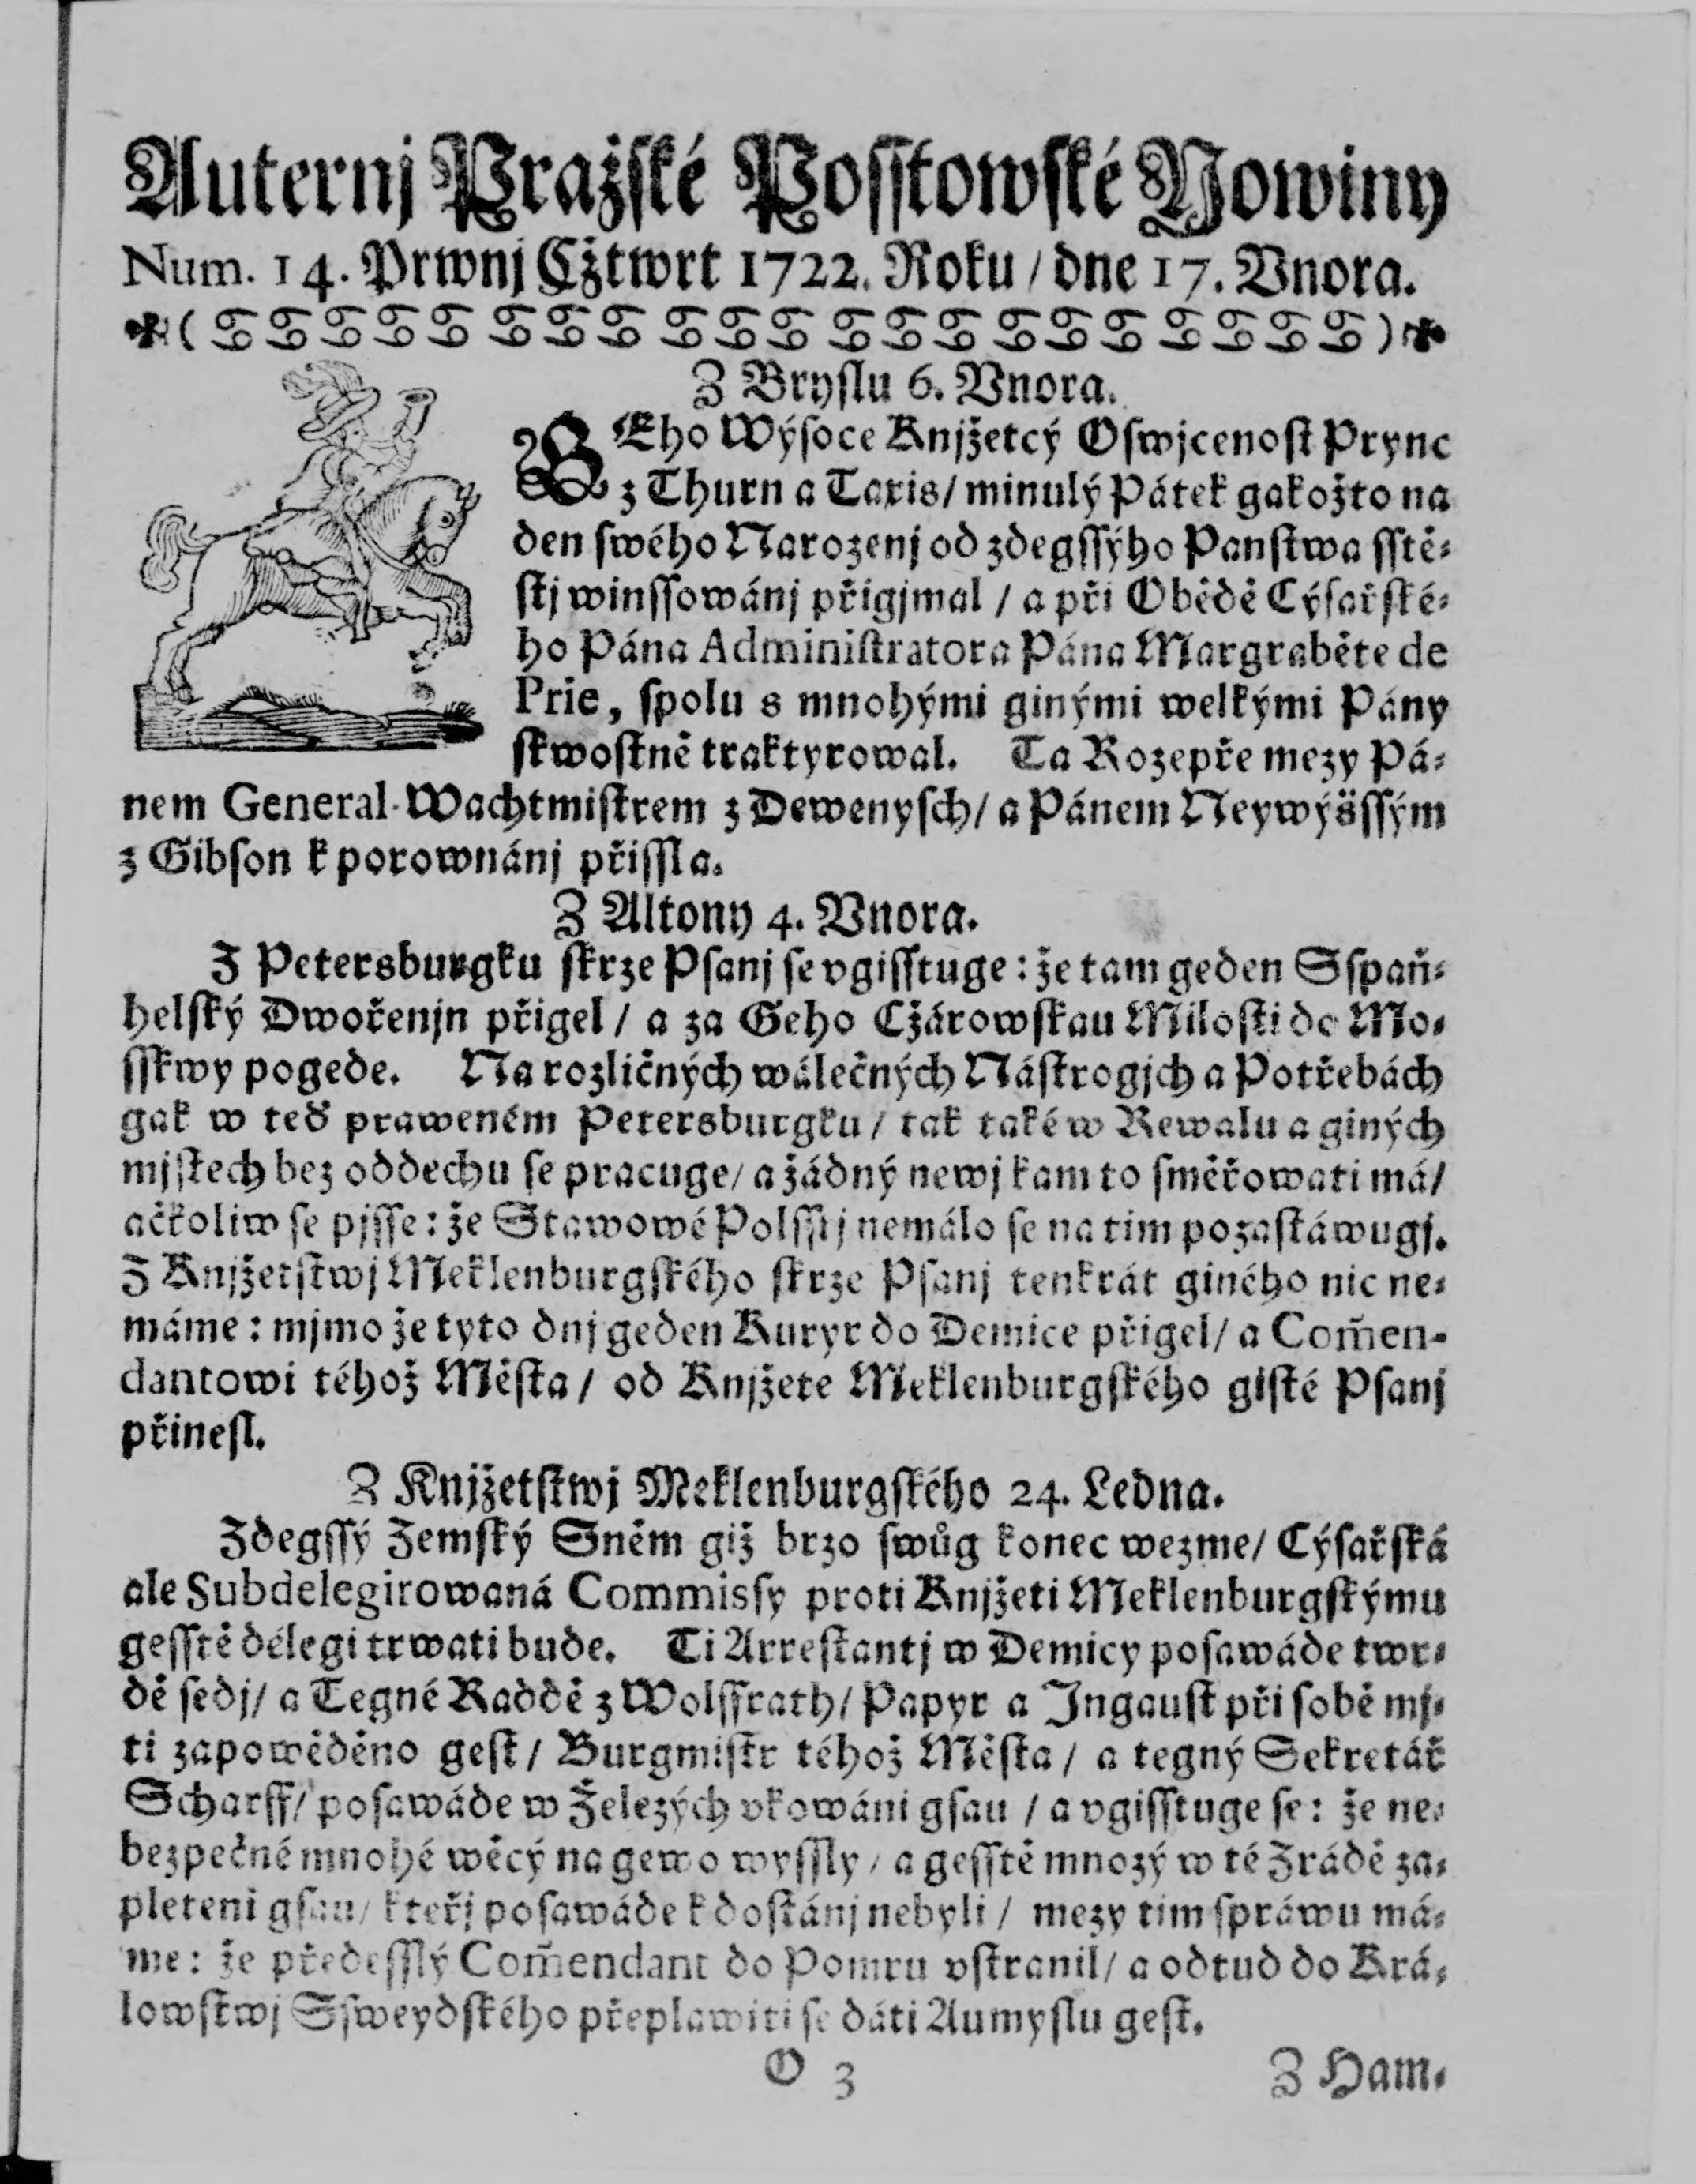 Auternj Pražské Posstowské Nowiny
Num. 14. Prwnj Cžtwrt 1722. Roku / dne 17. Vnora.
Z Bryslu 6. Vnora.
GEho Wýsoce Knjžetcý Oswjcenost Prync
z Thurn a Taxis / minulý Pátek gakožto na
den swého Narozenj od zdegssýho Panstwa sstě-
stj winssowánj přigjmal / a při Obědě Cýsařské-
ho Pána Administratora Pána Margraběte de
Prie, spolu s mnohými ginými welkými Pány
skwostně traktyrowal. Ta Rozepře mezy Pá-
nem General-Wachtmistrem z Dewenysch / a Pánem Neywýssým
z Gibson k porownánj přissla.
Z Altony 4. Vnora.
Z Petersburgku skrze Psanj se vgisstuge: že tam geden Sspaň-
helský Dwořenjn přigel / a za Geho Cžárowskau Milosti do Mo-
sskwy pogede. Na rozličných wálečných Nástrogjch a Potřebách
gak w teď praweném Petersburgku / tak také w Rewalu a giných
mjstech bez oddechu se pracuge / a žádný newj kam to směřowati má /
ačkoliw se pjsse: že Stawowé Polsstj nemálo se na tim pozastáwugj.
Z Knjžetstwj Meklenburgského skrze Psanj tenkrát giného nic ne-
máme: mjmo že tyto dnj geden Kuryr do Demice přigel / a Com̃en-
dantowi téhož Města / od Knjžete Meklenburgského gisté Psanj
přinesl.
Z Knjžetstwj Meklenburgského 24. Ledna.
Zdegssý Zemský Sněm giž brzo swůg konec wezme / Cýsařská
ale Subdelegirowaná Commissy proti Knjžeti Meklenburgskýmu
gesstě délegi trwati bude. Ti Arrestantj w Demicy posawáde twr-
dě sedj / a Tegné Raddě z Wolffrath / Papyr a Jngaust při sobě mj-
ti zapowěděno gest / Burgmistr téhož Města / a tegný Sekretář
Scharff / posawáde w Železých vkowáni gsau / a vgisstuge se: že ne-
bezpečné mnohé wěcý na gewo wyssly / a gesstě mnozý w té Zrádě za-
pleteni gsau / kteřj posawáde k dostánj nebyli / mezy tim spráwu má-
me: že předesslý Com̃endant do Pomru vstranil / a odtud do Krá-
lowstwj Ssweydského přeplawiti se dáti Aumyslu gest.
O 3 Z Ham-